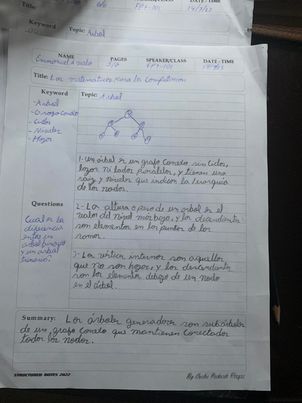 Keyword
Topic: Arbol
NAME
PAGES
SPEAKER/CLASS
DATE - TIME
Title: Las matematicas para la computacion
Keyword
Topic: Arbol
- Arbol
- Ciclos
- Niveles
- Hojas
1- Un arbol es un grafo conexo sin ciclos,
lazos ni lados paralelos, y tienen una
raiz y niveles que indican la jerarquia
de los nodos.
Questions
Cual es la
diferencia
entre un
arbol binario
y un arbol
2- La altura o peso de un arbol es el
valor del nivel mas bajo, y los
son elementos en los puntos de las
ramas.
3- Los vertices internos son aquellos
que no son hojas, y los descendientes
son los elementos debajo de un nodo
en el arbol.
Summary: Los árboles generadores son subárboles
de un grafo conexo que mantienen conectados
todos los nodos.
STRUCTURED NOTES 2022